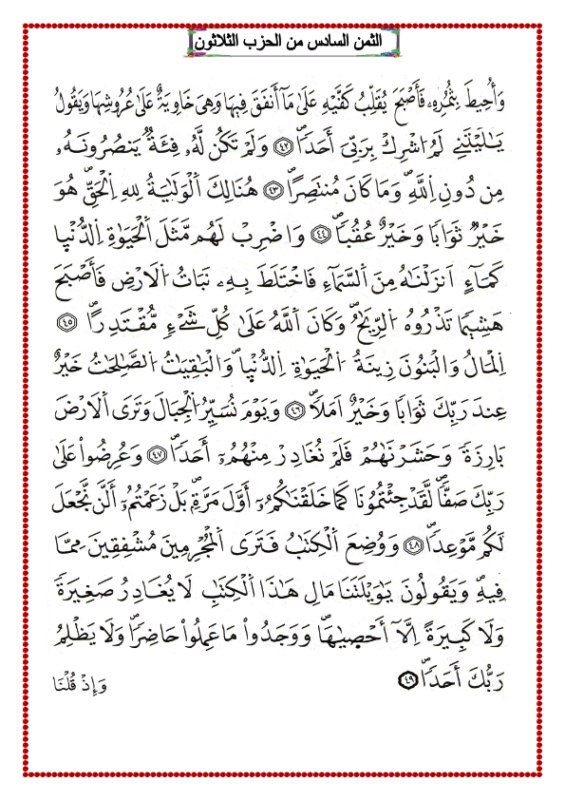 الثمن السادس من الحزب الثلاثون
وَأُحِيطَ بِثُمُرِهِۦ فَأَصْبَحَ يُقَلِّبُ كَفَّيْهِ عَلَىٰ مَآ أَنفَقَ فِيهَا وَهِىَ خَاوِيَةٌ عَلَىٰ عُرُوشِهَا وَيَقُولُ
يَـٰلَيْتَنِے لَمُ اشْرِكْ بِرَبِّىَ أَحَداً ٤٢ وَلَمْ تَكُن لَّهُۥ فِئَةٌ يَنصُرُونَهُۥ
مِن دُونِ اِللَّهِ وَمَا كَانَ مُنتَصِراً ٤٣ هُنَالِكَ اَلْوَلَـٰيَةُ لِلهِ اِلْحَقِّ هُوَ
خَيْرٌ ثَوَاباً وَخَيْرٌ عُقُباً ٤٤ وَاضْرِبْ لَهُم مَّثَلَ اَلْحَيَوٰةِ اِلدُّنْيا
كَمَآءٍ اَنزَلْنَـٰهُ مِنَ اَلسَّمَآءِ فَاخْتَلَطَ بِهِۦ نَبَاتُ اُلَارْضِ فَأَصْبَحَ
هَشِيماً تَذْرُوهُ اُلرِّيَـٰحُ وَكَانَ اَللَّهُ عَلَىٰ كُلِّ شَےْءٍ مُّقْتَدِراً ٤٥
اِلْمَالُ وَالْبَنُونَ زِينَةُ اُلْحَيَوٰةِ اِلدُّنْيا وَالْبَـٰقِيَـٰتُ اُلصَّـٰلِحَـٰتُ خَيْرٌ
عِندَ رَبِّكَ ثَوَاباً وَخَيْرٌ اَمَلاً ٤٦ وَيَوْمَ نُسَيِّرُ اُلْجِبَالَ وَتَرَى اَلَارْضَ
بَارِزَةً وَحَشَرْنَـٰهُمْ فَلَمْ نُغَادِرْ مِنْهُمُۥٓ أَحَداً ٤٧ وَعُرِضُواْ عَلَىٰ
رَبِّكَ صَفّاً لَّقَدْ جِئْتُمُونَا كَمَا خَلَقْنَـٰكُمُۥٓ أَوَّلَ مَرَّةٍ بَلْ زَعَمْتُمُۥٓ أَلَّن نَّجْعَلَ
لَكُم مَّوْعِداً ٤٨ وَوُضِعَ اَلْكِتَـٰبُ فَتَرَى اَلْمُجْرِمِينَ مُشْفِقِينَ مِمَّا
فِيهِ وَيَقُولُونَ يَـٰوَيْلَتَنَا مَالِ هَـٰذَا اَلْكِتَـٰبِ لَا يُغَادِرُ صَغِيرَةً
وَلَا كَبِيرَةً اِلَّآ أَحْصَيٰهَا وَوَجَدُواْ مَا عَمِلُواْ حَاضِراً وَلَا يَظْلِمُ
رَبُّكَ أَحَداً ٤٩ وَإِذْ قُلْنَا